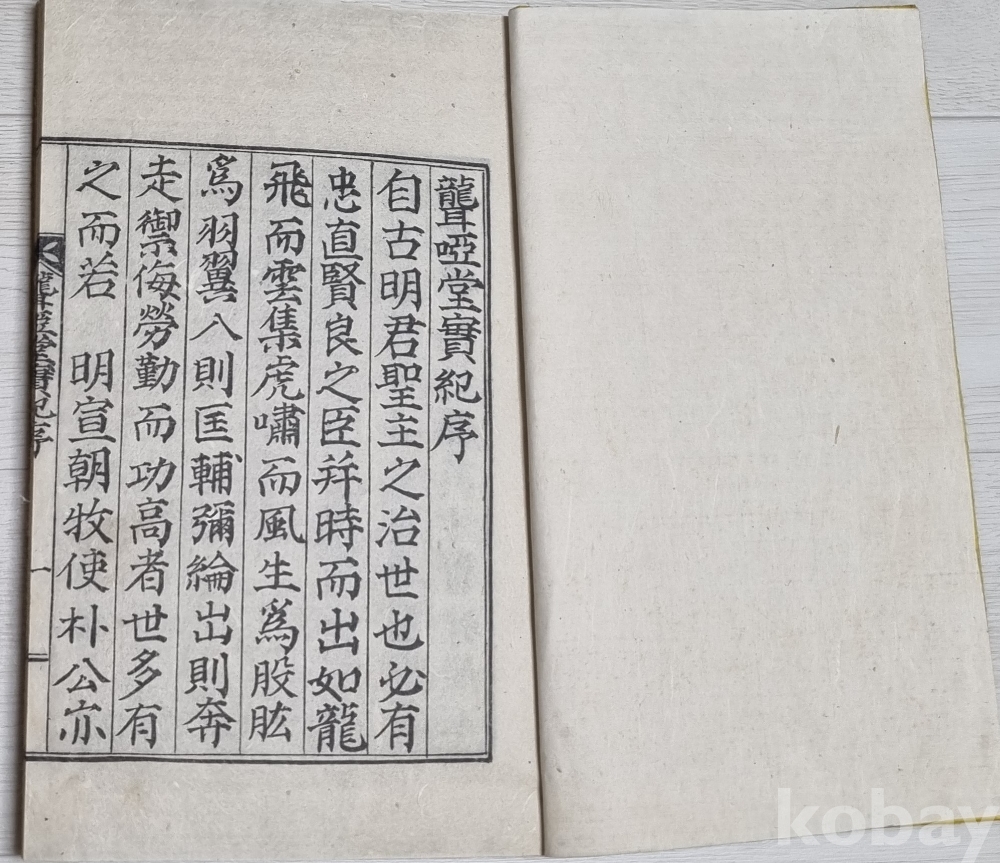 聾啞堂實紀序
自古明君聖主之治世也必有
忠直賢良之臣幷時而出如龍
飛而雲集虎嘯而風生爲股肱
爲羽翼入則匡輔彌綸出則奔
走禦侮勞勤而功高者世多有
之而若 明宣朝牧使朴公亦
聾啞堂實紀序
一
kobay